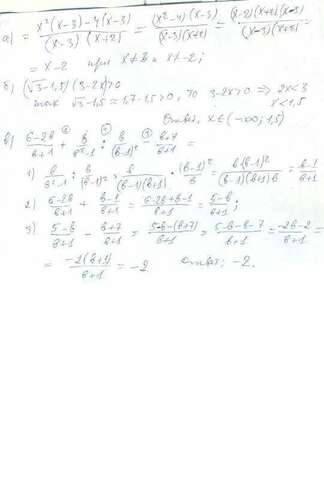 а) = x²(x-3)-4(x-3) / (x-3)(x+2) = (x²-4)(x-3) / (x-3)(x+2) = (x-2)(x+2)(x-3) / (x-3)(x+2) =
= x-2 при x≠3 и x≠-2;
б) (√3-1,5)(3-2x)>0
так √3-1,5 ≈ 1,7-1,5>0, то 3-2x>0 ⇒ 2x<3
x<1,5
Ответ. x∈(-∞; 1,5)
в) 6-2b / b+1 + b / b²-1 : b / (b-1)² - b+7 / b+1 =
1) b / b²-1 : b / (b-1)² = b / (b-1)(b+1) · (b-1)² / b = b(b-1)² / (b-1)(b+1)b = b-1 / b+1
2) 6-2b / b+1 + b-1 / b+1 = 6-2b+b-1 / b+1 = 5-b / b+1;
3) 5-b / b+1 - b+7 / b+1 = 5-b-(b+7) / b+1 = 5-b-b-7 / b+1 = -2b-2 / b+1 =
= -2(b+1) / b+1 = -2 Ответ: -2.